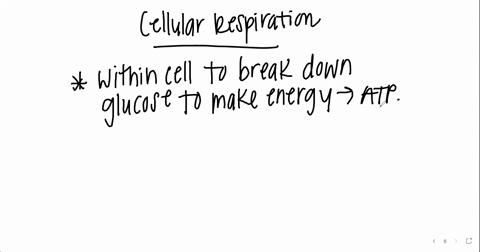 Cellular Respiration
* Within cell to break down
glucose to make energy → ATP.
6